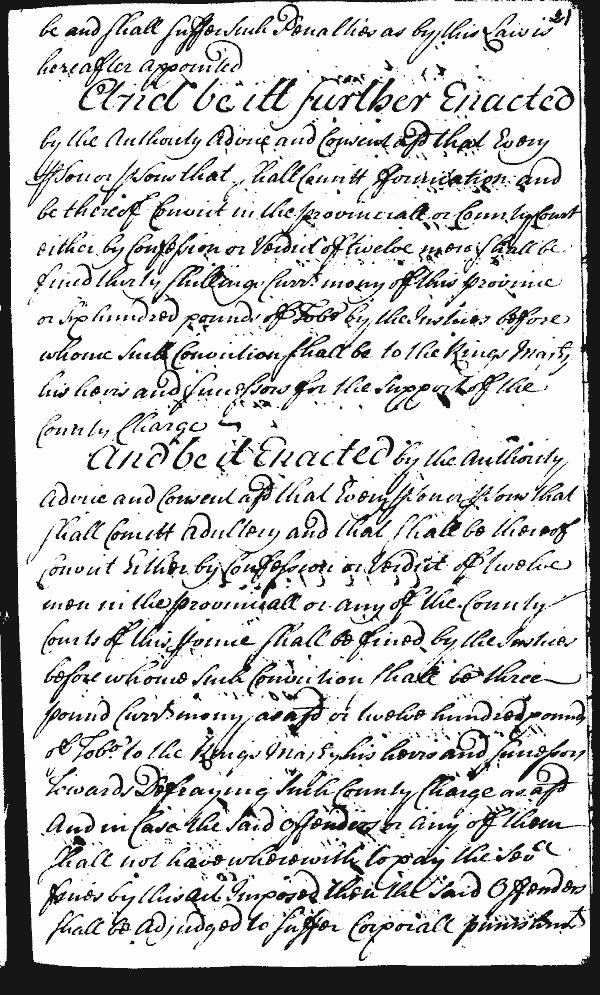 21
be and shall suffer such Penalties as by this Law is
hereafter appointed
And be itt further Enacted
by the Authority Advice and Consent afsd that Every
Pson or Psons that shall Comitt fornication and
be thereof Convict in the provinciall or County Court
either by Confession or Verdict of twelve men shall be
fined thirty shillings Currt mony of this province
or six hundred pounds of Tobo by the Justices before
whome such Conviction shall be to the Kings Majty
his heirs and successors for the Support of the
County Charge
And be it Enacted by the Authority
Advice and Consent afsd that Every Pson or Psons that
shall Comitt Adultery and that shall be thereof
Convict Either by Confession or Verdict of twelve
men in the provinciall or any of the County
Courts of this Pvince shall be fined by the Justices
before whome such Conviction shall be three
pound Currt mony as afsd or twelve hundred pound
of Tobo to the Kings Majty his heirs and successors
towards Defraying such County Charge as afsd
And in Case the said Offenders or any of them
shall not have wherewith to pay the sevll
fines by this act Imposed then the said Offenders
shall be Adjudged to suffer Corporall punishmt